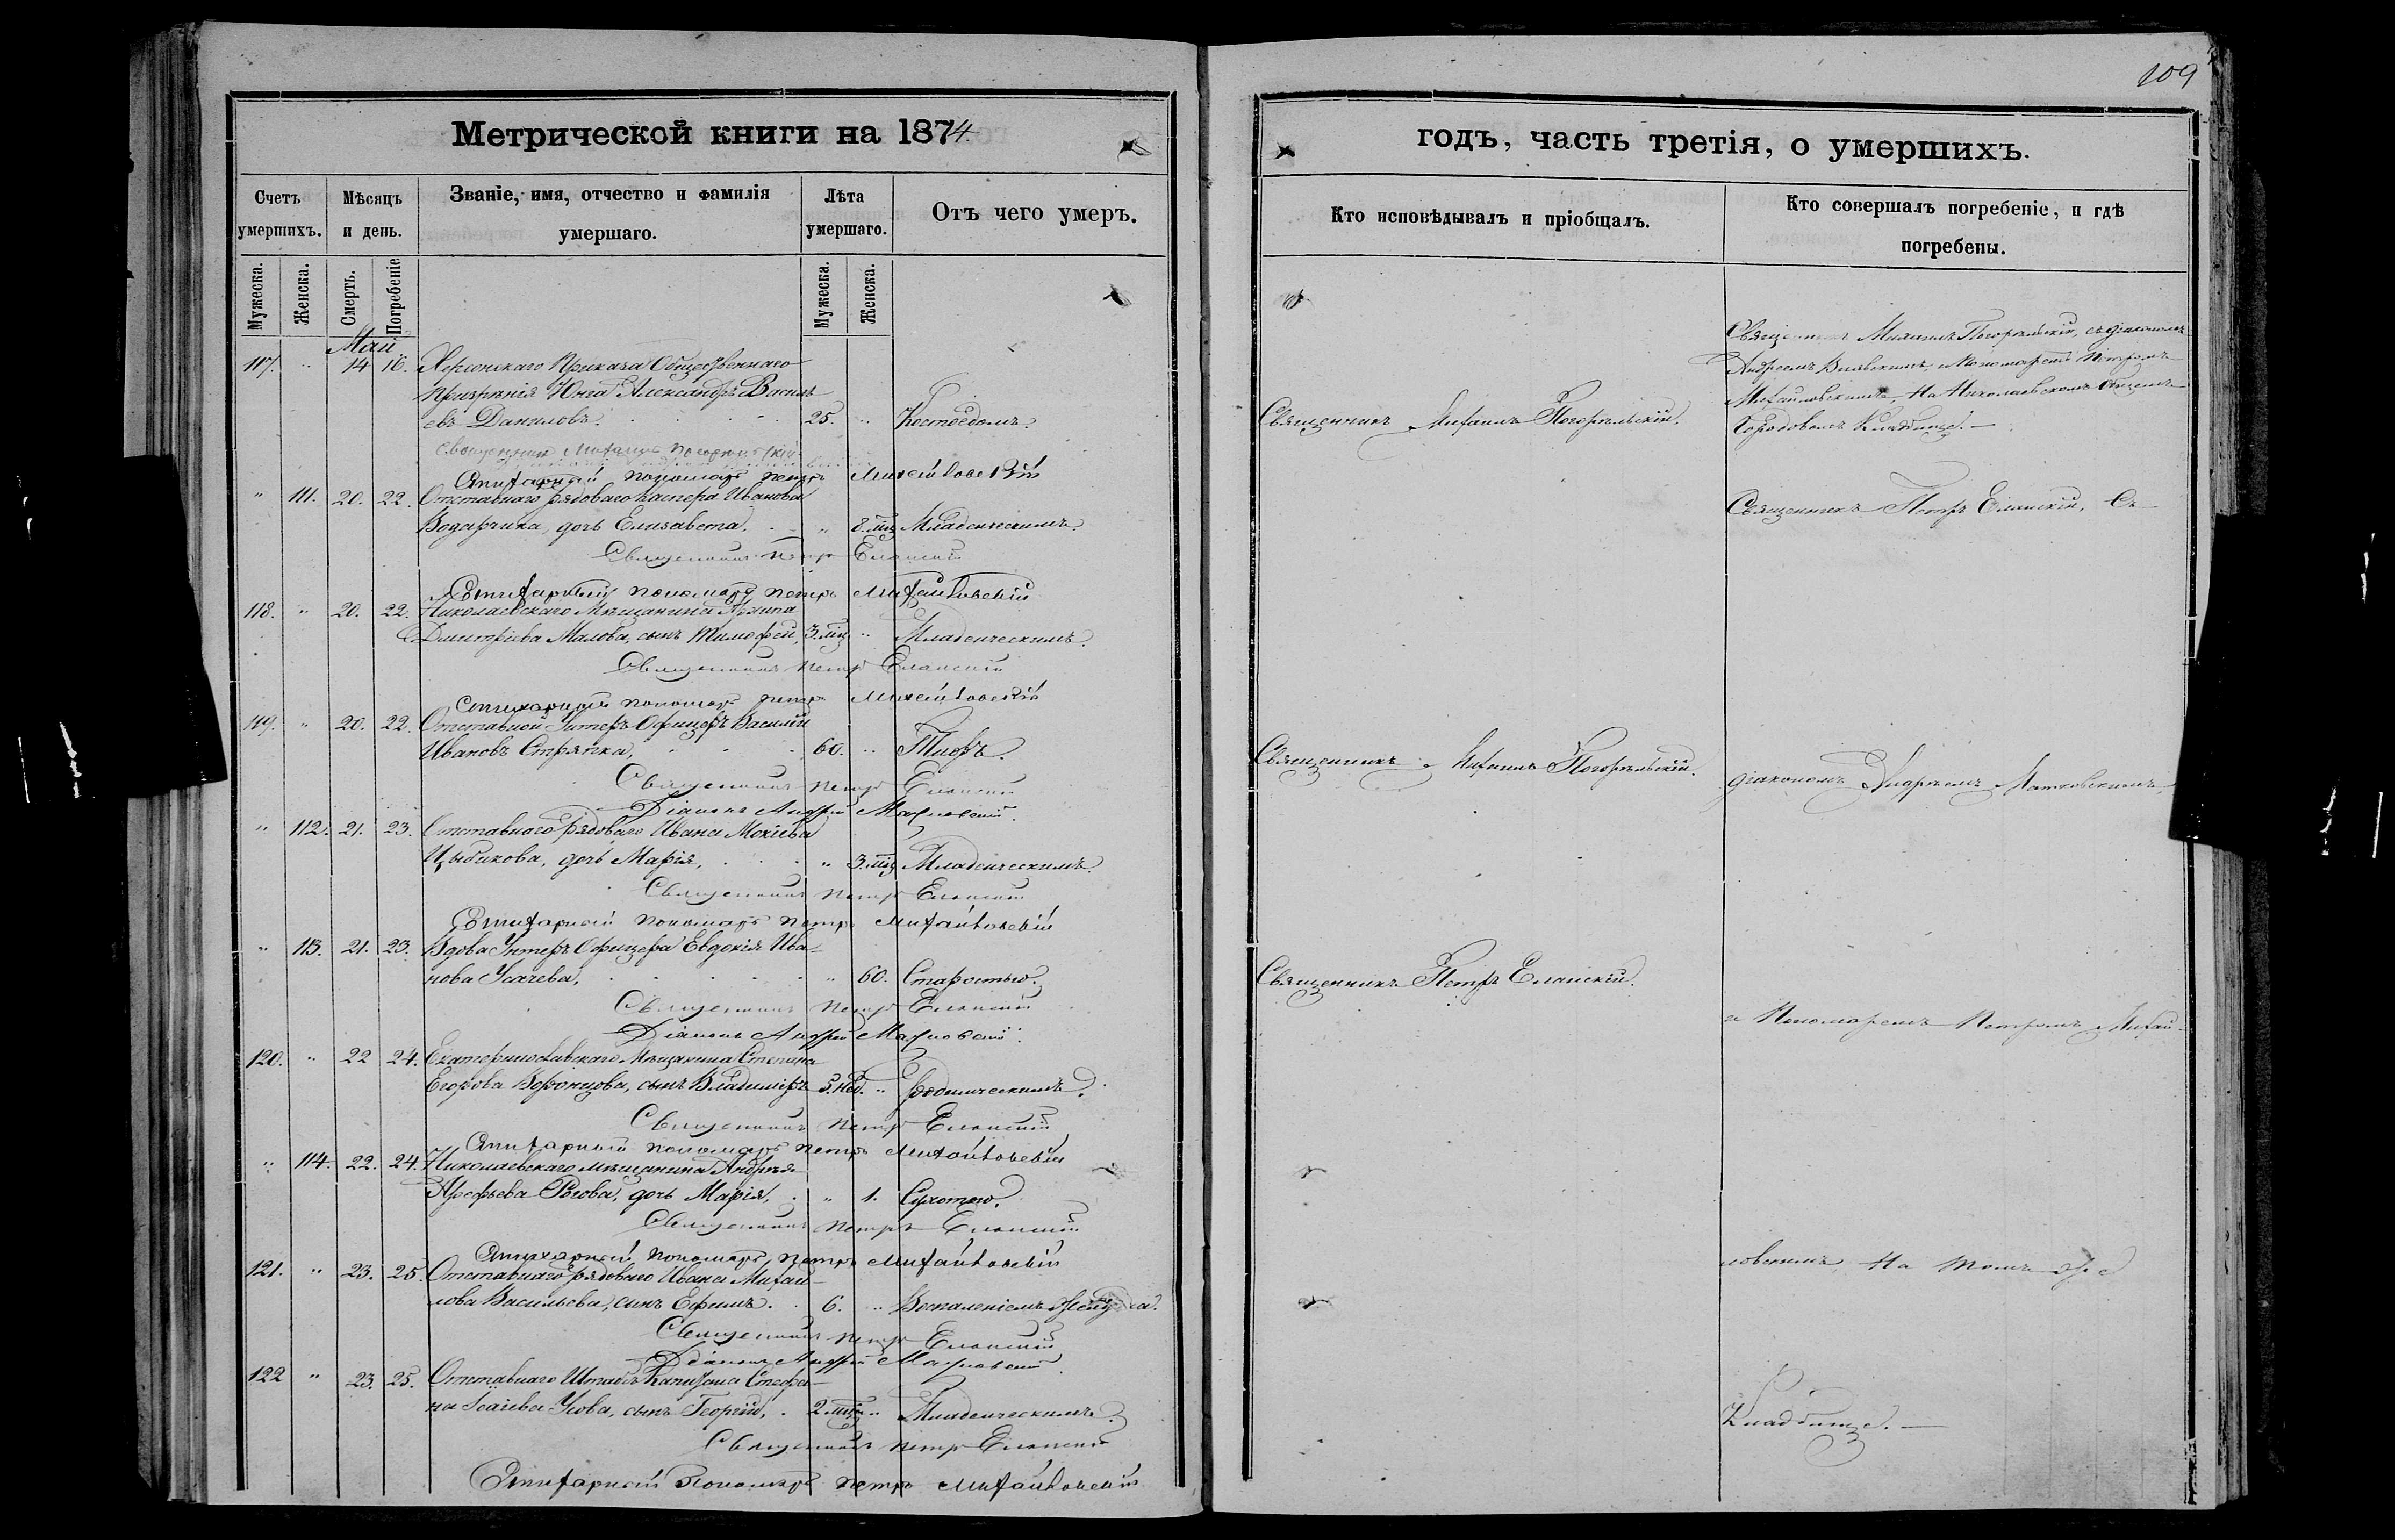 109
Метрической книги на 1874
годъ, часть третія, о умершихъ.
Счетъ умершихъ.
Мѣсяцъ и день.
Званіе, имя, отчество и фамилія умершаго.
Лѣта умершаго.
Отъ чего умеръ.
Кто исповѣдывалъ и пріобщалъ.
Кто совершалъ погребеніе, и гдѣ погребены.
Мужеска.
Женска.
Смерть.
Погребеніе
Мужеска.
Женска.
Май
117. " 14 16. Херсонскаго Приказа Общественнаго
призрѣнія Юнга Александръ Василь
евъ Даниловъ. 25. " Костоѣдомъ.
Священникъ Михаилъ Погорѣльскій
Стихарный пономарь Петръ Михайловскій
" 111. 20. 22. Отставнаго рядоваго Каспера Иванова
дочь Елисавета, " 8. мц Младенческимъ.
Священникъ Петръ Еланскій
Стихарный пономарь Петръ Михайловскій
118. " 20. 22. Николаевскаго Мѣщанина
Дмитріева Малова, сынъ Тимофей, 3. мц " Младенческимъ.
Священникъ Петръ Еланскій
Стихарный пономарь Петръ Михайловскій
119. " 20. 22. Отставной Унтеръ Офицеръ Василій
Ивановъ 60. " Тифъ.
Священникъ Петръ Еланскій
Діаконъ Андрей
" 112. 21. 23. Отставнаго рядоваго Ивана Мокіева
Цыбикова, дочь Марія, " 3. мц Младенческимъ.
Священникъ Петръ Еланскій
Стихарный пономарь Петръ Михайловскій
" 113. 21. 23. Вдова Унтеръ Офицера Евдокія Ива-
нова Усачева, " 60. Старостью.
Священникъ Петръ Еланскій
Діаконъ Андрей
120. " 22 24. Екатеринославскаго Мѣщанина Степана
Егорова Воронцова, сынъ Владиміръ 5. нед. " Родимческимъ.
Священникъ Петръ Еланскій
Стихарный пономарь Петръ Михайловскій
" 114. 22. 24. Николаевскаго Мѣщанина Андрея
Арефьева Рогова, дочь Марія, " 1. Сухотою.
Священникъ Петръ Еланскій
Стихарный пономарь Петръ Михайловскій
121. " 23. 25. Отставнаго рядоваго Ивана Михай-
лова Васильева, сынъ Ефимъ. 6. " Воспаленіемъ
Священникъ Петръ Еланскій
Діаконъ Андрей
122 " 23. 25. Отставнаго Штабсъ Капитана Стефа-
на Исаіева Усова, сынъ Георгій, 2. мц " Младенческимъ.
Священникъ Петръ Еланскій
Стихарный Пономарь Петръ Михайловскій
Священникъ Михаилъ Погорѣльскій.
Священникъ Михаилъ Погорѣльскій.
Священникъ Петръ Еланскій.
Священникъ Михаилъ Погорѣльскій, съ діакономъ
Андреемъ и Пономаремъ Петромъ
Михайловскимъ, На Николаевскомъ Общемъ
Городовомъ Кладбищѣ. —
Священникъ Петръ Еланскій, Съ
діакономъ Андреемъ
и Пономаремъ Петромъ Михай-
ловскимъ, На томъ же
Кладбищѣ. —